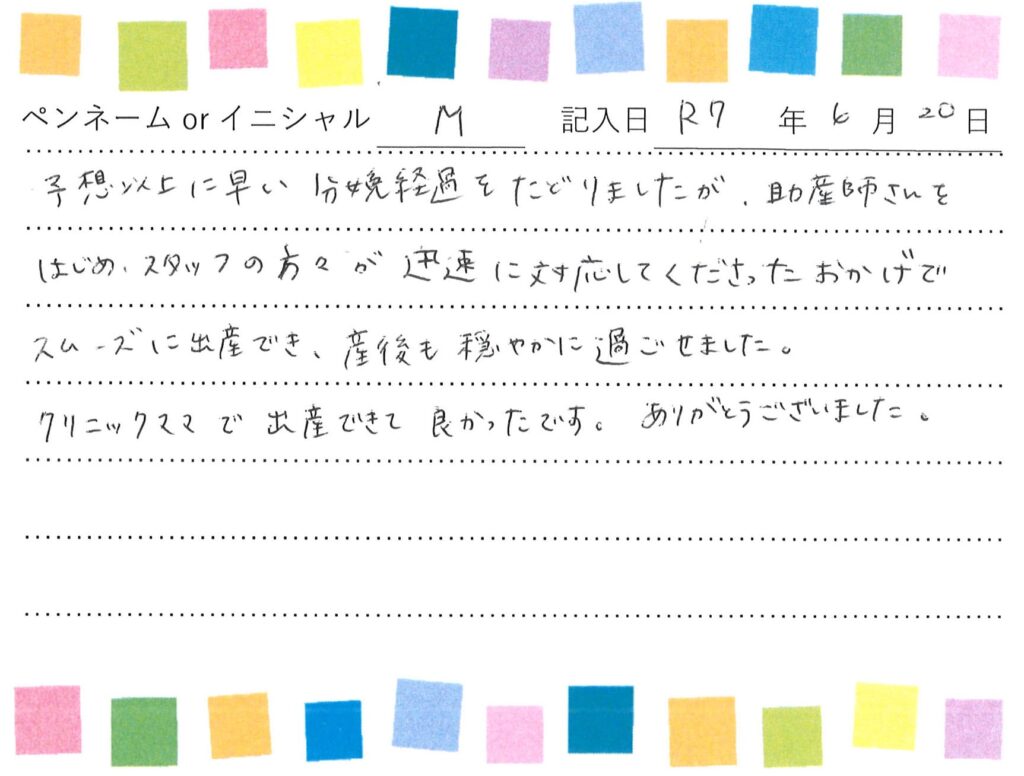 ペンネーム or イニシャル M 記入日 R7 年 6 月 20 日
予想以上に早い分娩経過をたどりましたが、助産師さんを
はじめ、スタッフの方々が迅速に対応してくださったおかげで
スムーズに出産でき、産後も穏やかに過ごせました。
クリニックママで出産できて良かったです。ありがとうございました。